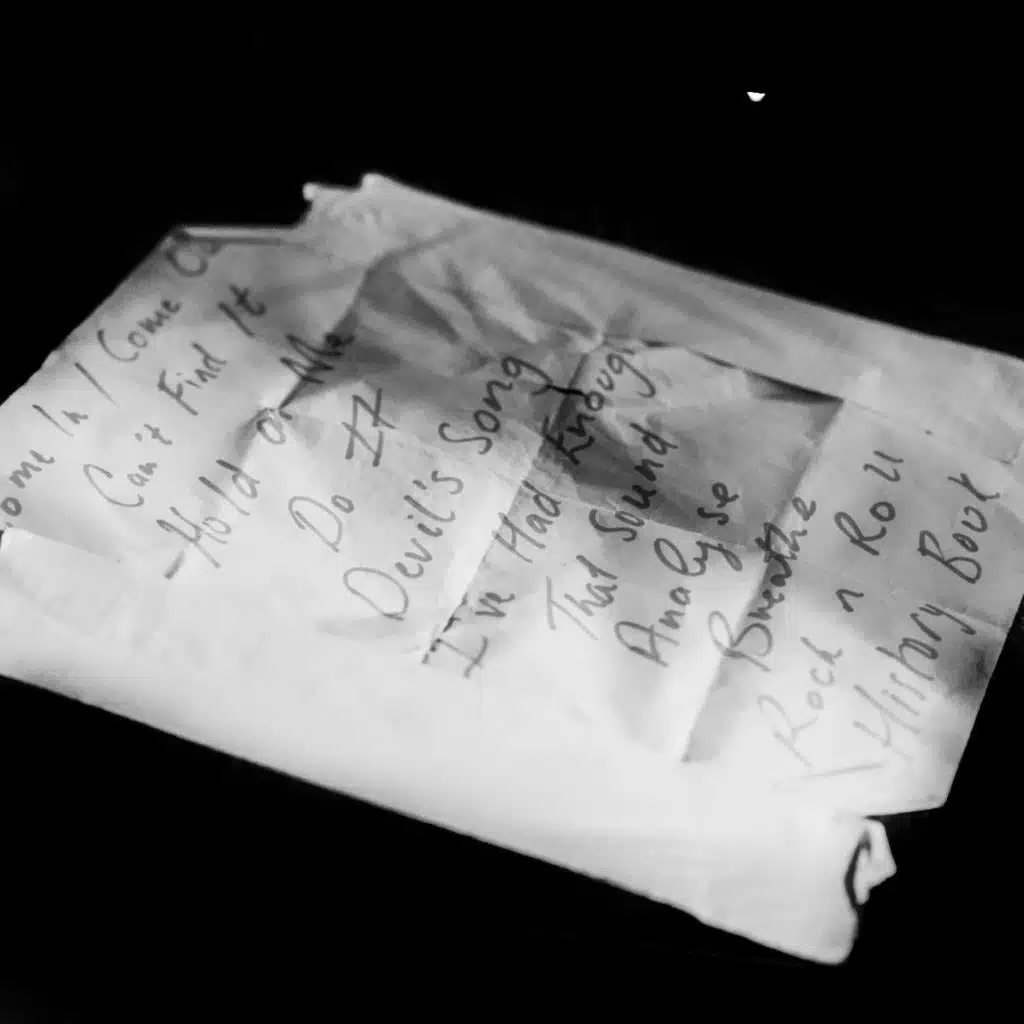 ome In / Come O
Can't Find It
-Hold on Me
Do It
Devil's Song
I've Had Enough
That Sound
Analyse
Breathe
Rock n Roll
History Book